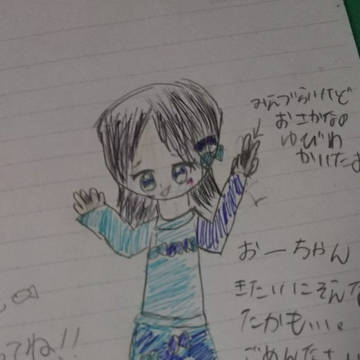 みえづらいけど
おさかなの
ゆびわ
かいたよ
おーちゃん
きたいにそえな
たかも…。
ごめんなさ
てね!!